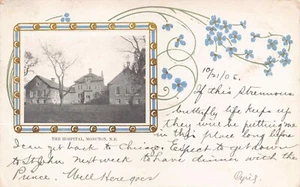 10/21/06.
If this strenuous
butterfly life keeps up
they will be putting me
THE HOSPITAL, MONCTON, N.B.
in this place long before
I ever get back to Chicago. Expect to get down
to St John next week to have dinner with the
Prince. Well Here goes